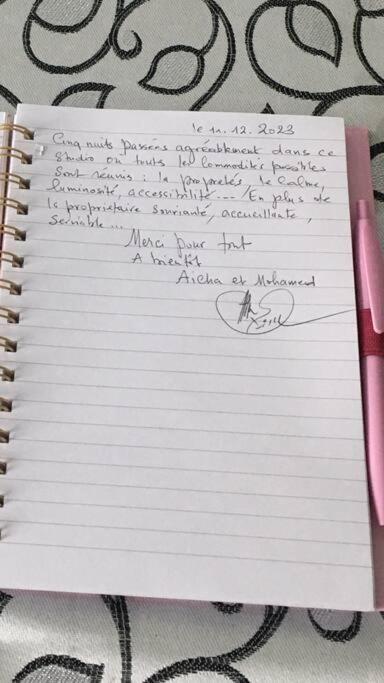 le 11.12.2023
Cinq nuits passées agréablement dans ce
Studio où touts les Commodités possibles
Sont réunis : la propretés, le Calme,
luminosité, accessibilité.... En plus de
la propriétaire Souriante, accueillante,
Serviable...
Merci pour tout
A bientôt
Aicha et Mohamed